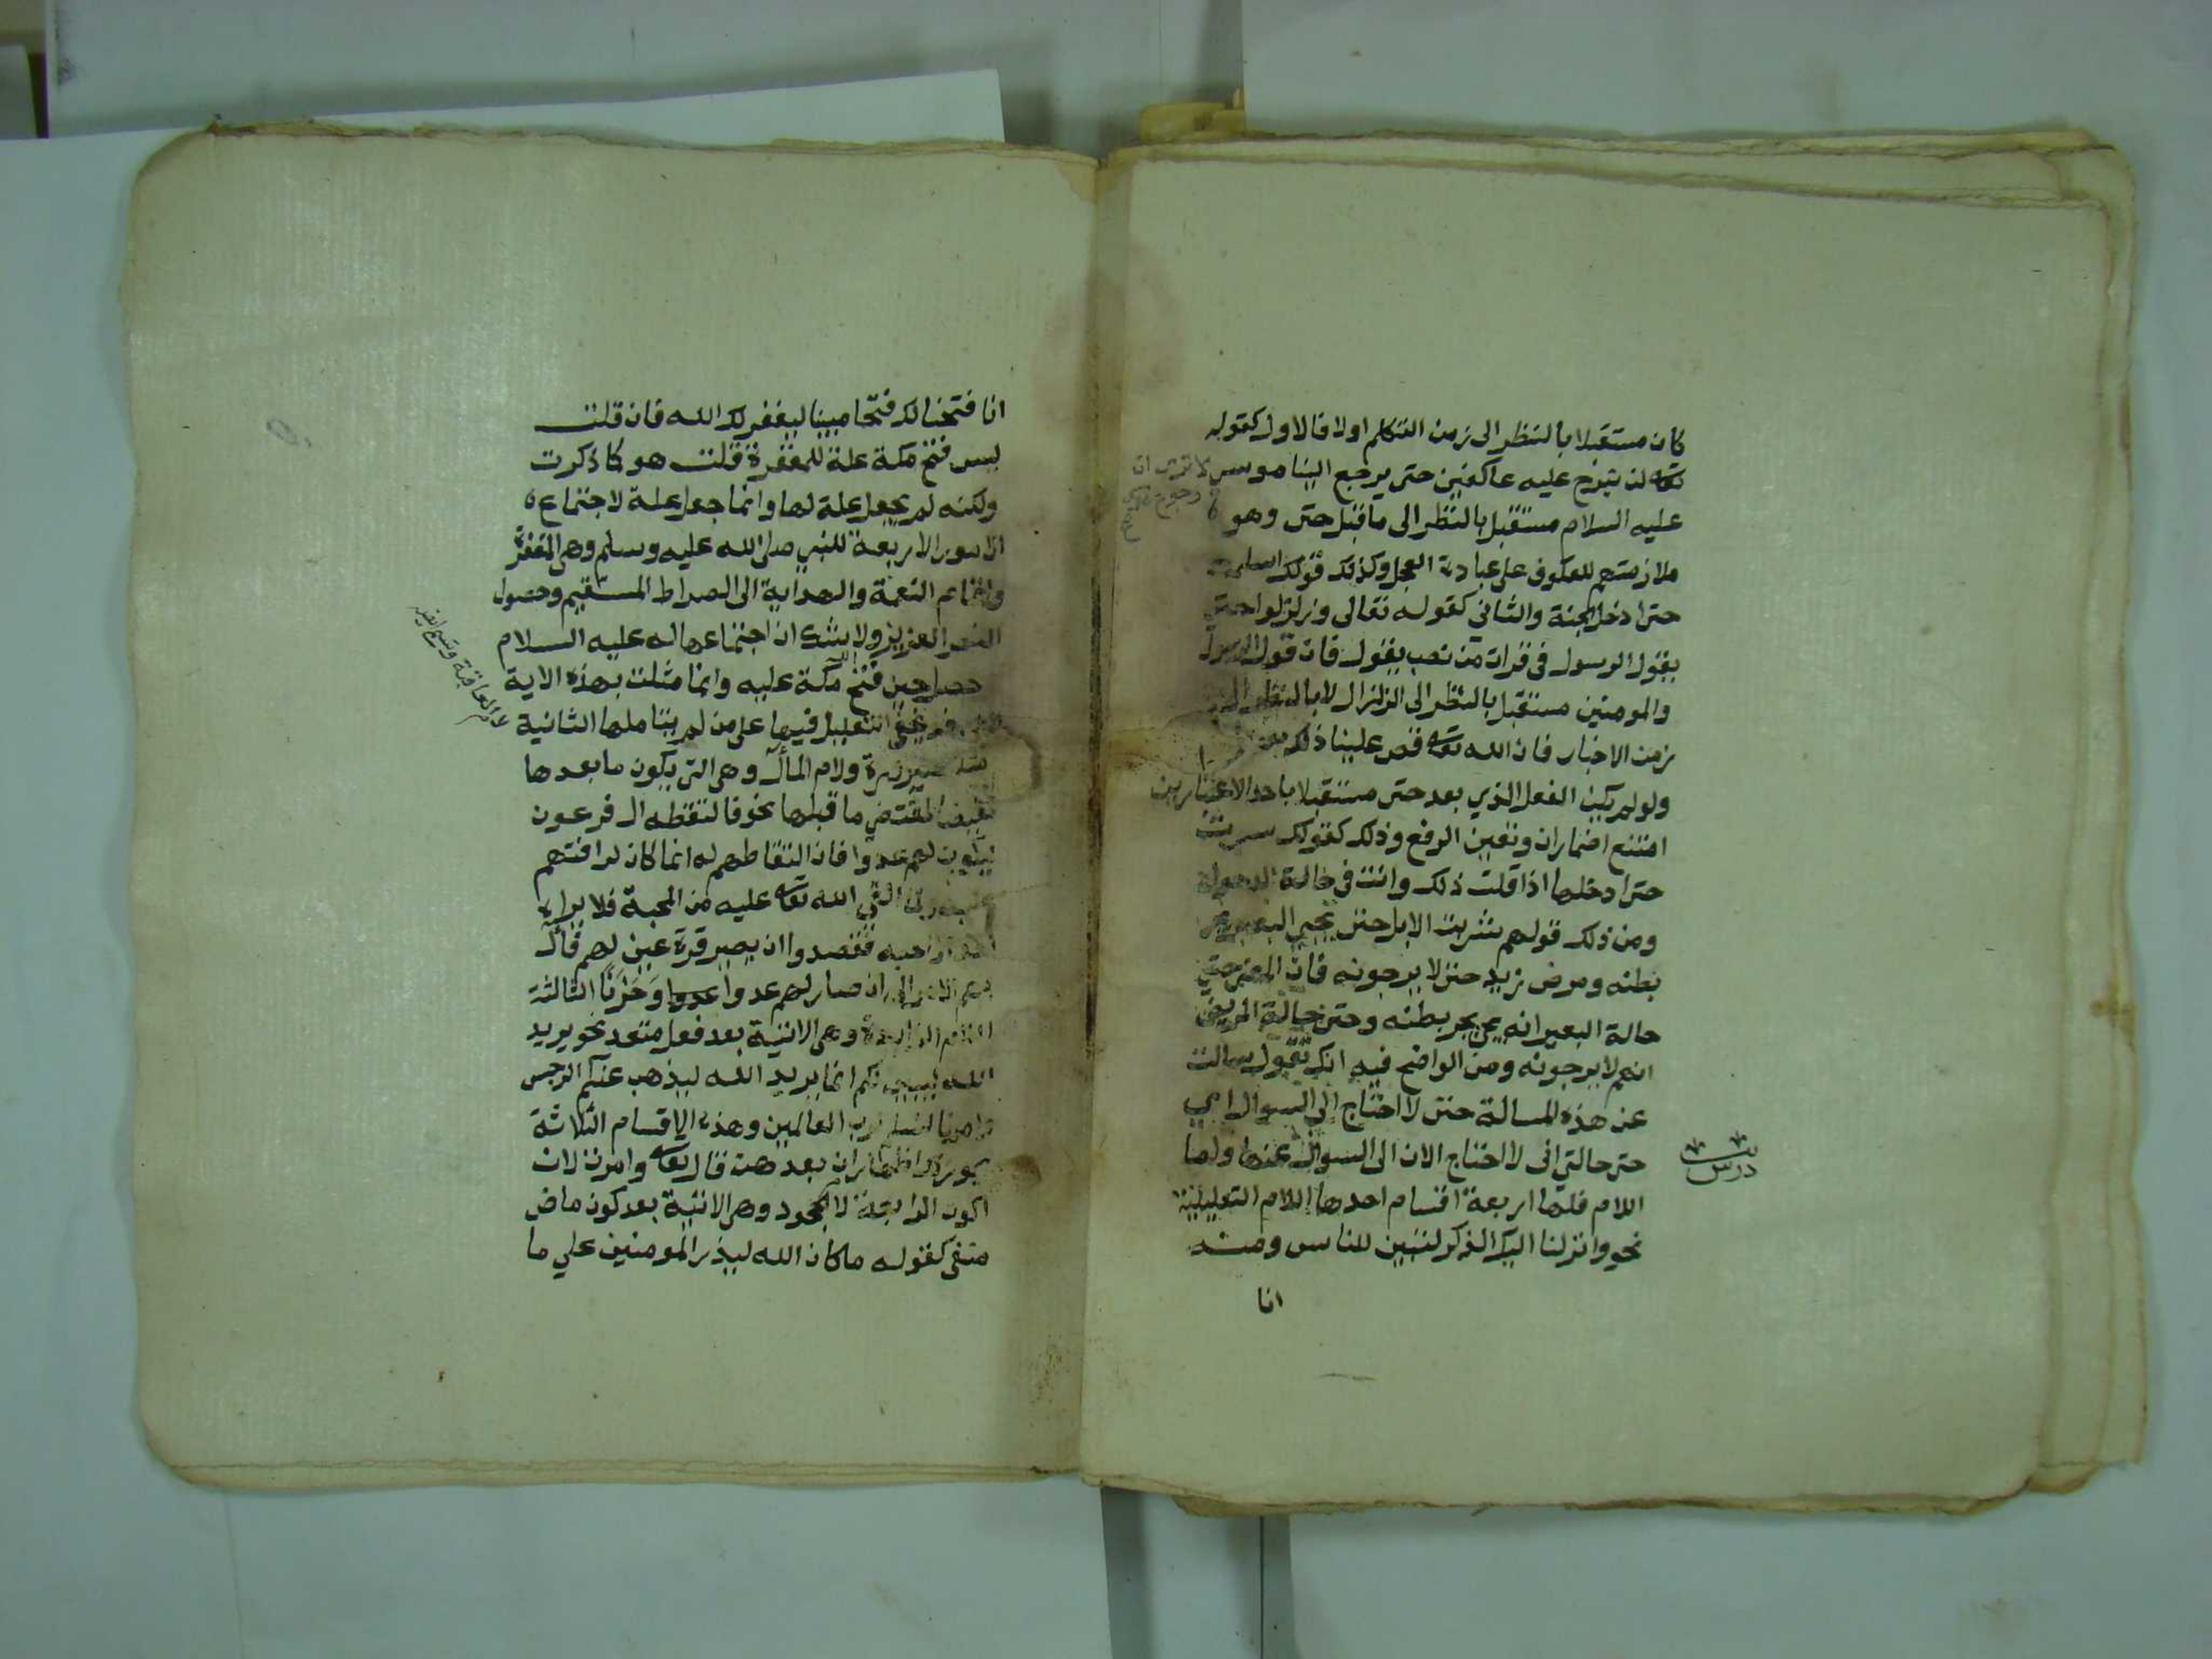 كان مستقبلا بالنظر الى زمن التكلم اولا فالاول كقوله
تعه لن نبرح عليه عاكفين حتى يرجع الينا موسى لا ترى ان
عليه السلام مستقبل بالنظر الى ما قبل حتى وهو
ملازمتهم للعكوف على عبادة العجل وكذلك قولك اسلمت
حتى ادخل الجنة والثاني كقوله تعالى وزلزلوا حتى
يقول الرسول فى قرات من نصب يقول فان قول الرسول
والمومنين مستقبل بالنظر الى الزلزال لا بالنظر الى
زمن الاخبار فان الله تعه قص علينا ذلك
ولو لم يكن الفعل الذي بعد حتى مستقبلا باحد الاعتبارين
امتنع اضمار ان وتعين الرفع وذلك كقولك سرت
حتى ادخلها اذا قلت ذلك وانت في حالة الدخول
ومن ذلك قولهم شربت الابل حتى يجيي البعير يجر
بطنه ومرض زيد حتى لا يرجونه فان المعنى حتى
حالة البعير انه يجي يجر بطنه وحتى حالة المريض
انهم لا يرجونه ومن الواضح فيه انك تقول سالت
عن هذه المسالة حتى لا احتاج الى السوال اي
حتى حالتي انى لا احتاج الان الى السوال عنها ولما
اللام فلها اربعة اقسام احدها اللام التعليلية
نحو وانزلنا اليك الذكر لتبين للناس ومنه
درس
انا
انا فتحنا لك فتحا مبينا ليغفر لك الله فان قلت
ليس فتح مكة علة للمغفرة قلت هو كا ذكرت
ولكنه لم يجعل علة لها وانما جعل علة لاجتماع
الامور الاربعة للنبي صلى الله عليه وسلم وهى المغفرة
واتمام النعمة والهداية الى الصراط المستقيم وحصول
النصر العزيز ولا يشك ان اجتماعها له عليه السلام
حصل حين فتح الله مكة عليه وانما مثلت بهذه الاية
التعليل فيها على من لم يتاملها الثانية
لام العاقبة وتسمى ايض
ولام المآل وهى التى يكون ما بعدها
نقيض المقتضى ما قبلها نحو فالتقطه ال فرعون
ليكون لهم عدوا فان التقاطهم له انما كان لرافتهم
الله تعه عليه من المحبة فلا يراه
احد الا احبه فقصدوا ان يصير قرة عين لهم فآل
بهم الامر الى ان صار لهم عدوا وَحَزَنًا الثالثة
اللام الزايدة وهى الاتية بعد فعل متعد نحو يريد
الله ليبين لكم انما يريد الله ليذهب عنكم الرجس
وامرنا لنسلم لرب العالمين وهذه الاقسام الثلاثة
يجوز اظهار ان بعدهن قال تعه وامرت لان
اكون الرابعة لام الجحود وهى الاتية بعد كون ماض
منفى كقوله ما كان الله ليذر المومنين علي ما